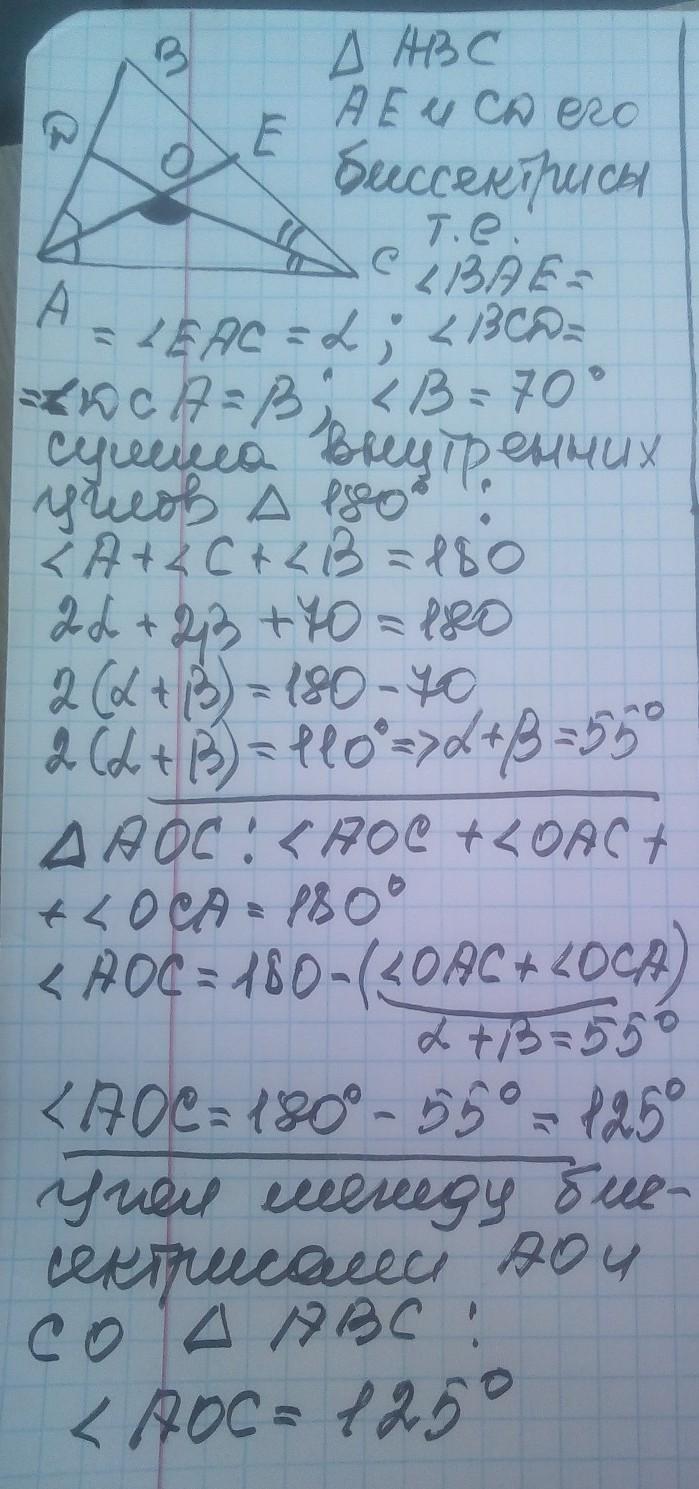 B
D
O
E
A
C
Δ ABC
AE и CD его
биссектрисы
т.е.
∠BAE=
= ∠EAC = α; ∠BCD=
=∠DCA = β; ∠B = 70°
сумма внутренних
углов Δ 180°:
∠A + ∠C + ∠B = 180
2α + 2β + 70 = 180
2(α + β) = 180 - 70
2(α + β) = 110° => α+β = 55°
Δ AOC: ∠AOC + ∠OAC +
+ ∠OCA = 180°
∠AOC = 180 - (∠OAC + ∠OCA)
α + β = 55°
∠AOC = 180° - 55° = 125°
угол между бис-
сектрисами AO и
CO Δ ABC:
∠AOC = 125°